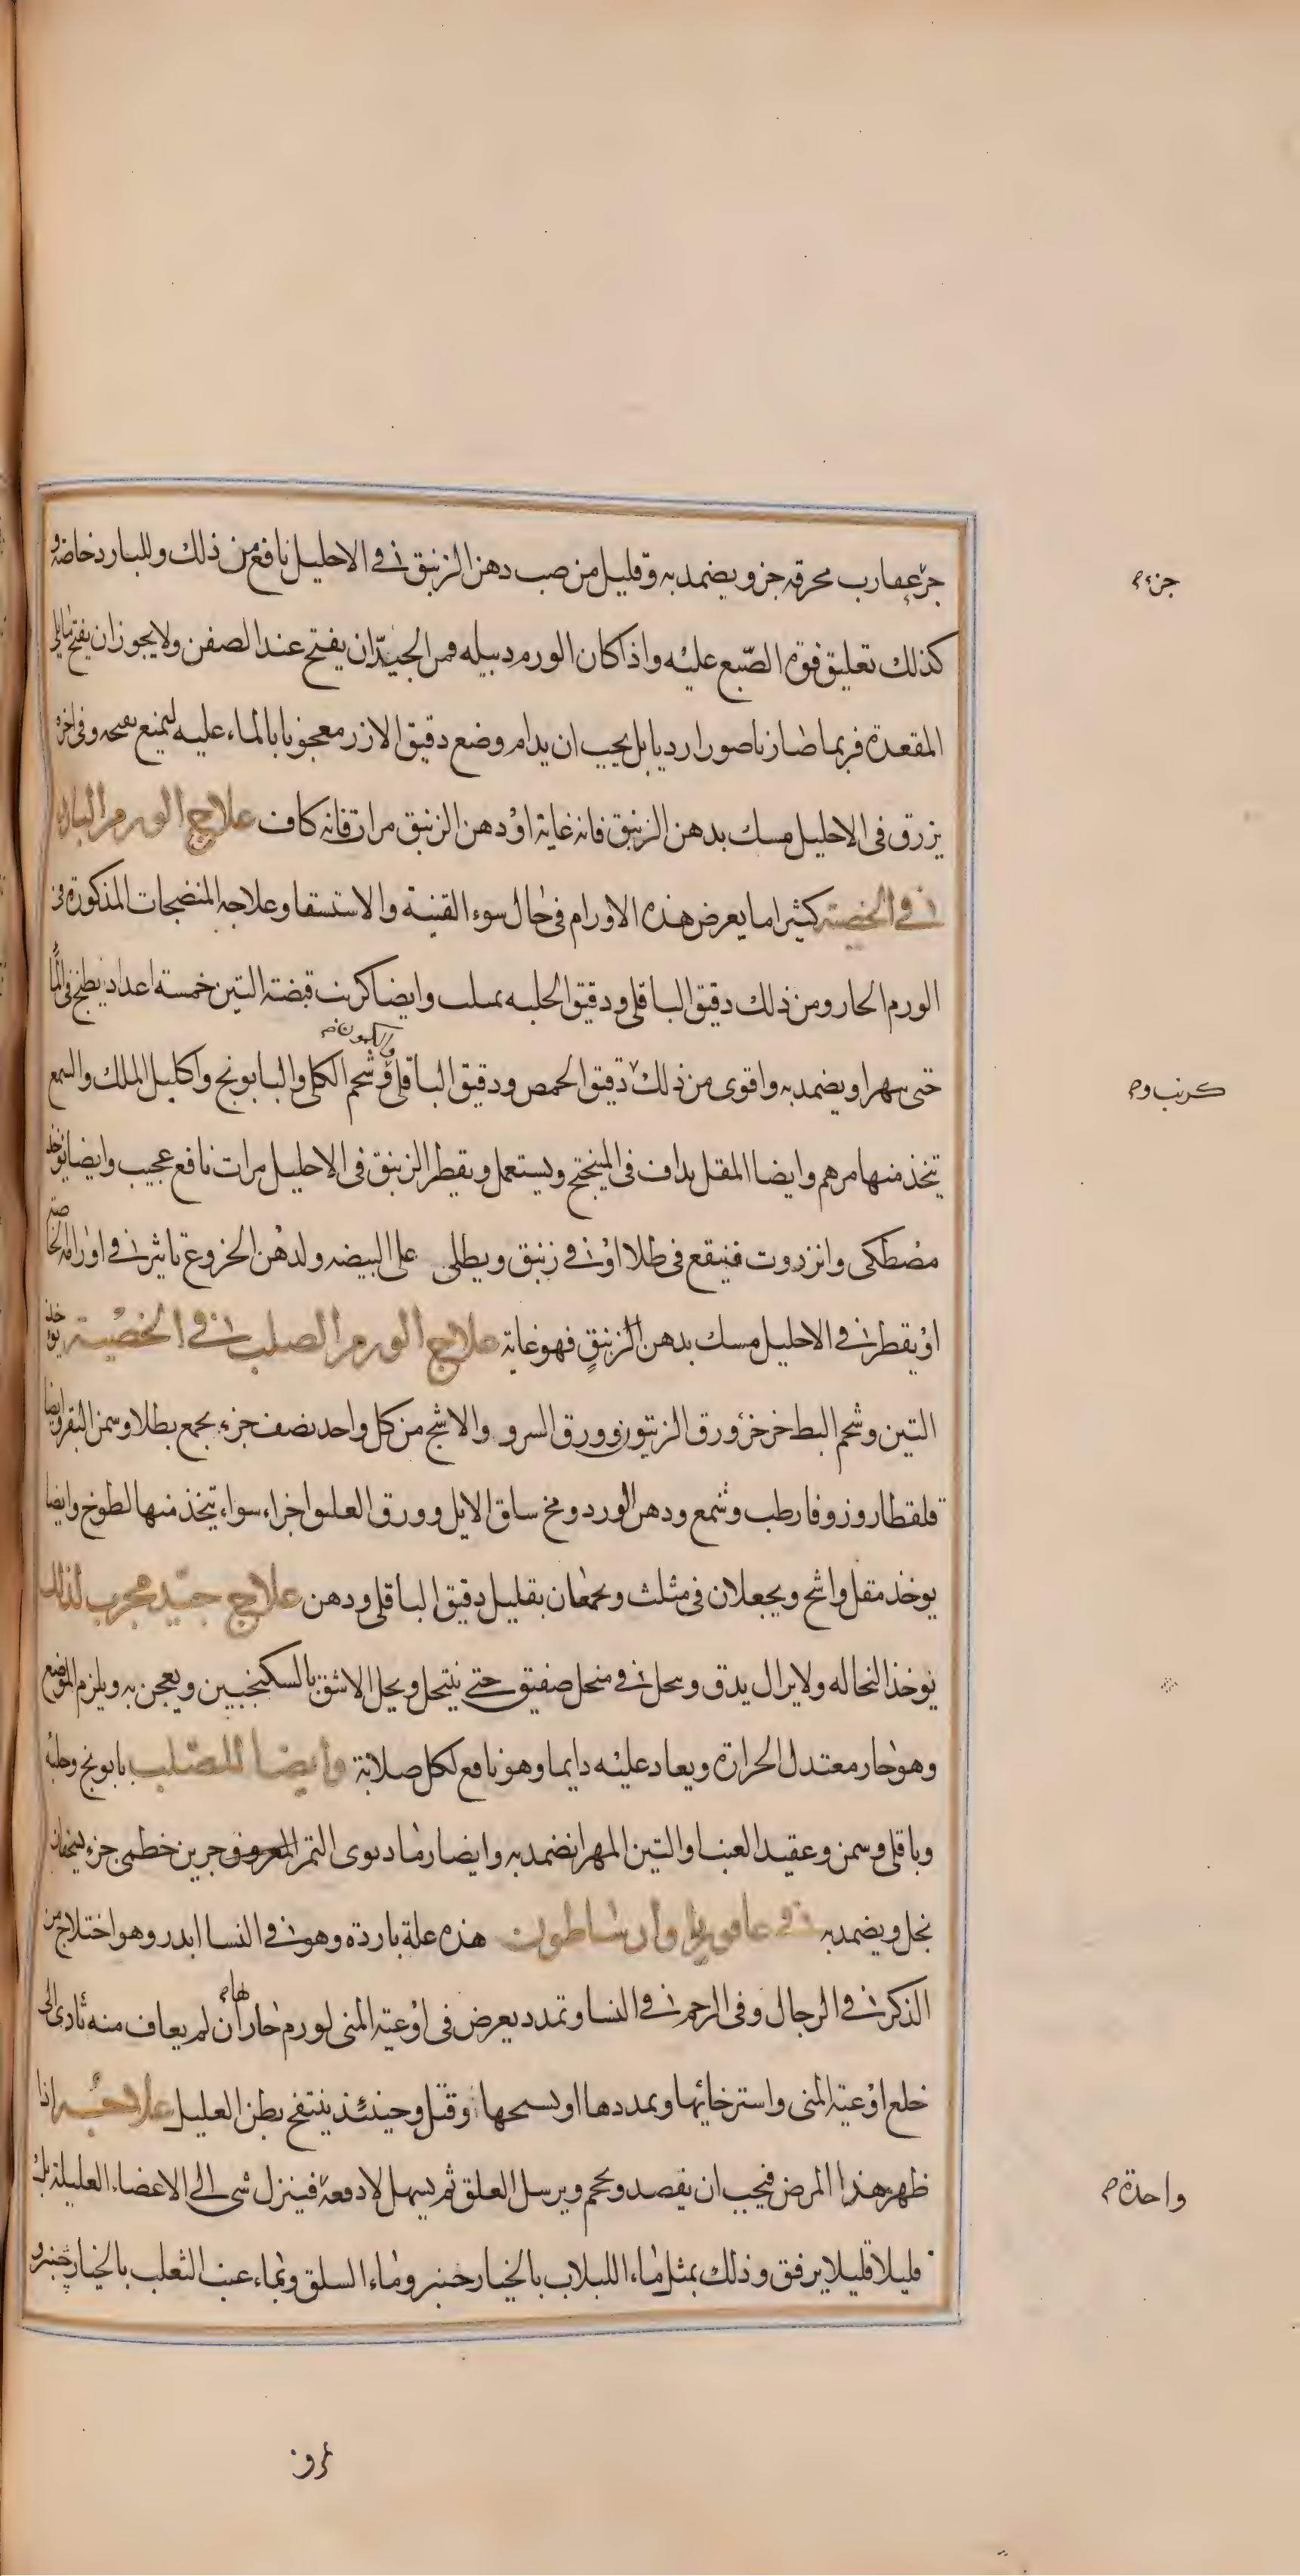 جزء عقارب محرقه جز ويضمد به وقليل من صب دهن الزنبق في الاحليل نافع من ذلك وللبارد خاصة و
جزء م
كذلك تعليق فوة الصبغ عليه واذا كان الورم دبيله فمن الجيد ان يفتح عند الصفن ولا يجوز ان يفتح مما يلى
المقعدة فربما صار ناصورا رديا بل يجب ان يدام وضع دقيق الارز معجونا بالماء عليه ليمنع نفحه وفى اخره
يزرق فى الاحليل مسك بدهن الزنبق فانه غاية او دهن الزنبق مرات فانه كاف علاج الورم البارد
في الخصية كثيرا ما يعرض هذه الاورام فى حال سوء القنية والاستسقا وعلاجه المنضجات المذكورة فى
الورم الحار ومن ذلك دقيق الباقلى ودقيق الحلبه بمثلث وايضا كرنب قبضة التين خمسة اعداد يطبخ فى الماء
والكمون صح
حتى يتهرا ويضمد به واقوى من ذلك دقيق الحمص ودقيق الباقلى وشحم الكلى والبابونج واكليل الملك والشمع
كرنب وم
يتخذ منها مرهم وايضا المقل يداف فى الميبختج ويستعمل ويقطر الزنبق فى الاحليل مرات نافع عجيب وايضا يوخذ
مصطكى وانزروت فينقع فى طلا او في زنبق ويطلى على البيضه ولدهن الخروع تاثير في اورامه الخاصة
او يقطر في الاحليل مسك بدهن الزنبق فهو غاية علاج الورم الصلب في الخصية يوخذ
التين وشحم البط جزء جزء ورق الزيتون وورق السرو والاشج من كل واحد نصف جزء يجمع بطلا وسمن البقر وايضا
قلقطار وزوفا رطب وشمع ودهن الورد ومخ ساق الايل وورق العليق اجزاء سواء يتخذ منها لطوخ وايضا
يوخذ مقل واشج ويجعلان فى مثلث ويجمعان بقليل دقيق الباقلى ودهن علاج جيد مجرب لذلك
يوخذ النخاله ولا يزال يدق وينخل في منخل صفيق حتى ينتخل ويحل الاشق بالسكنجبين ويعجن به ويلزم الموضع
وهو حار معتدل الحرارة ويعاد عليه دايما وهو نافع لكل صلابة وايضا للصلب بابونج وحلبة
وباقلى وسمن وعقيد العنب والتين المهرا نضمد به وايضا رماد نوى التمر المعروف جزين خطمى جزء يسحقان
بخل ويضمد به في عافويطا وارساطون هذه علة باردة وهو في النسا اندر وهو اختلاج من
الذكر في الرجال وفى الرحم في النسا وتمدد يعرض فى اوعية المنى لورم حار ان لم يعاف منه تأدى الى
هام
خلع اوعية المنى واسترخائها وتمددها او تسحها وقتل وحينئذ ينتفخ بطن العليل علاجه اذا
ظهر هذا المرض فيجب ان يفصد ويحجم ويرسل العلق ثم يسهل لا دفعة فينزل شى الى الاعضاء العليلة بل
واحدة م
قليلا قليلا يرفق وذلك بمثل ماء اللبلاب بالخيار شنبر وماء السلق وبماء عنب الثعلب بالخيار شنبر و